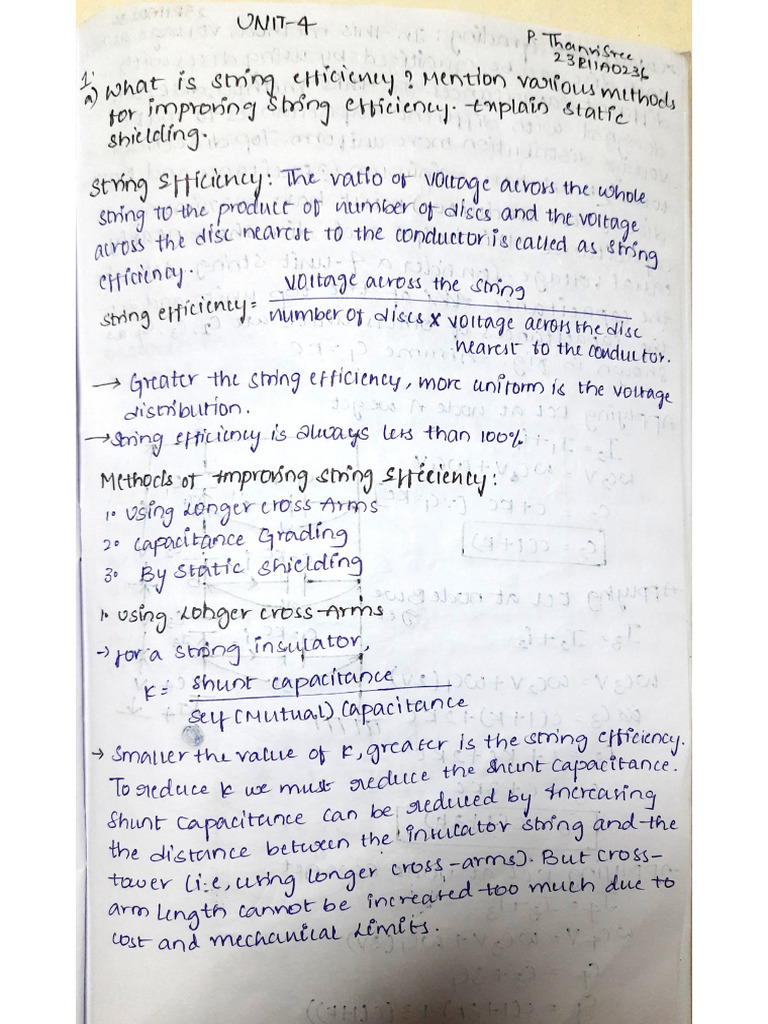 UNIT-4
P. Thanvisree,
23R11A0236
1.
a) What is string efficiency? Mention various methods
for improving string efficiency. Explain static
shielding.
String Efficiency: The ratio of voltage across the whole
string to the product of number of discs and the voltage
across the disc nearest to the conductor is called as string
efficiency.
string efficiency = voltage across the string
number of discs x voltage across the disc
nearest to the conductor.
→ Greater the string efficiency, more uniform is the voltage
distribution.
→ string efficiency is always less than 100%
Methods of Improving string Efficiency:
1. Using Longer cross Arms
2. Capacitance Grading
3. By Static Shielding
1. Using Longer cross-Arms
→ for a string insulator,
K = shunt capacitance
Self (Mutual) Capacitance
→ Smaller the value of K, greater is the string efficiency.
To reduce K we must reduce the shunt capacitance.
Shunt capacitance can be reduced by increasing
the distance between the insulator string and the
tower (i.e, using longer cross-arms). But cross-
arm length cannot be increated too much due to
cost and mechanical Limits.